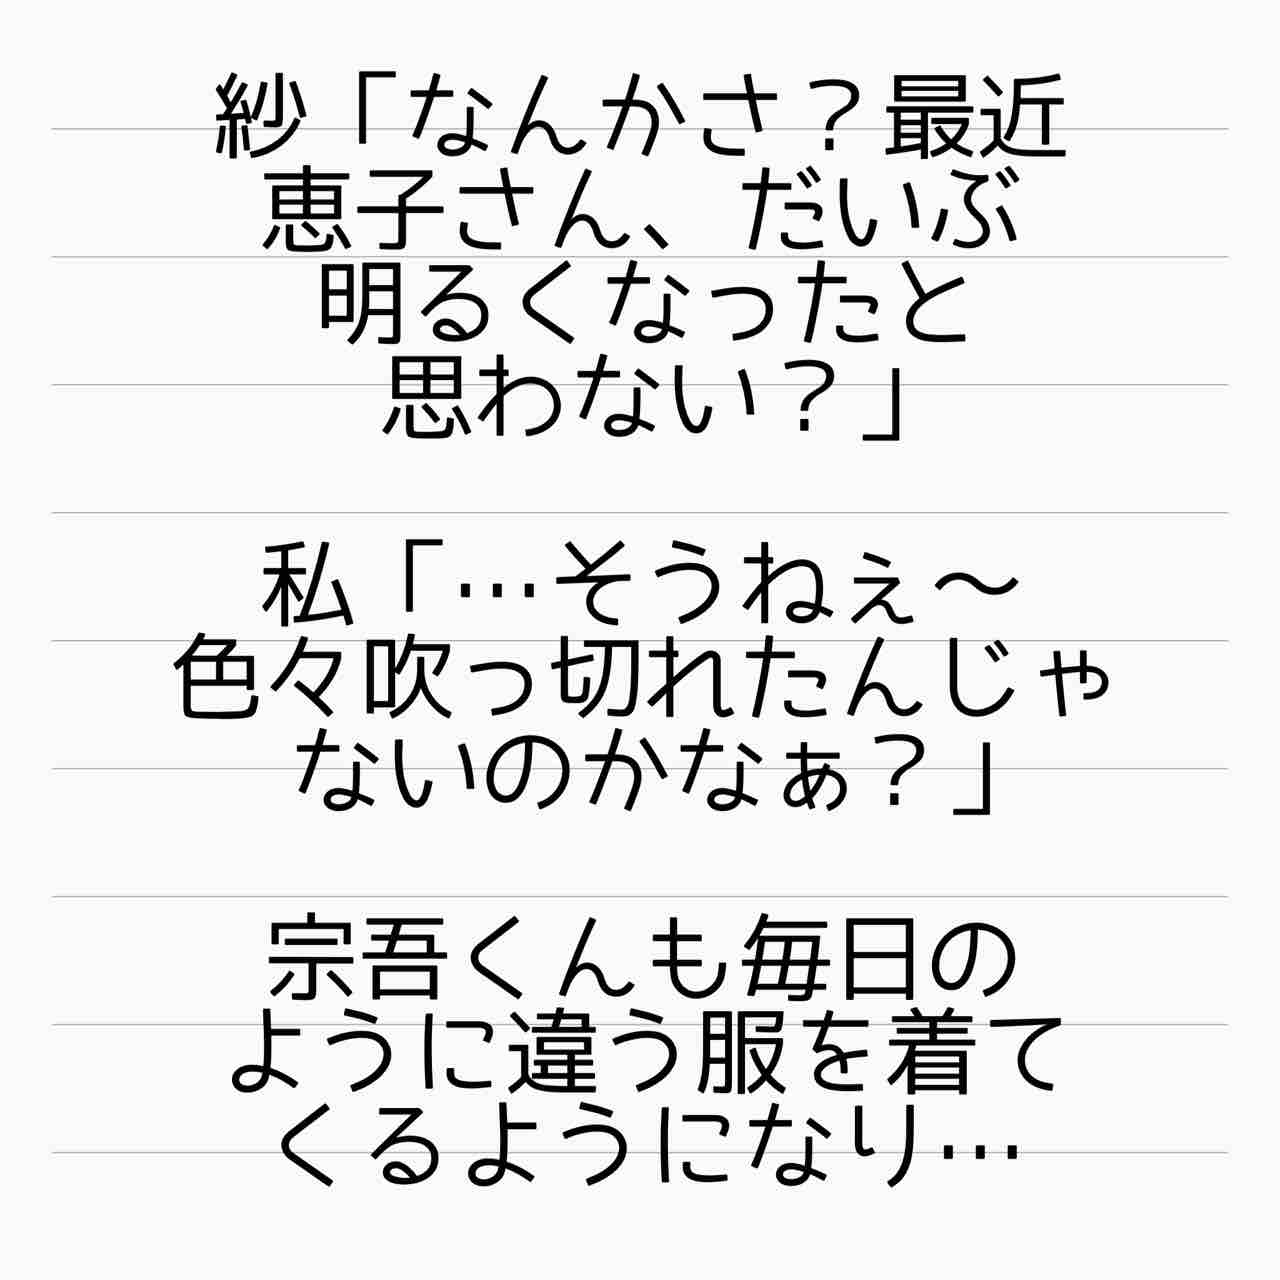 紗「なんかさ？最近
恵子さん、だいぶ
明るくなったと
思わない？」
私「…そうねぇ〜
色々吹っ切れたんじゃ
ないのかなぁ？」
宗吾くんも毎日の
ように違う服を着て
くるようになり…